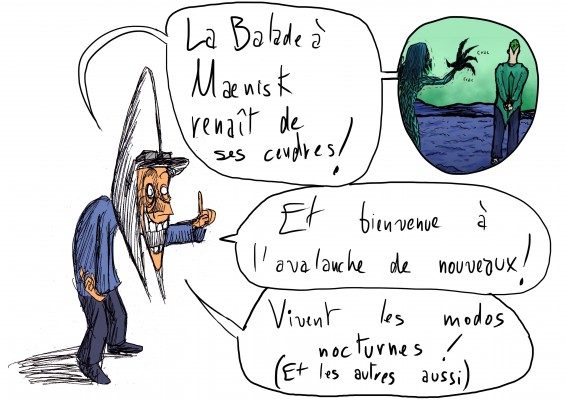 La Balade à
Maenisk
renaît de
ses cendres !
crac
crac
Et bienvenue à
l'avalanche de nouveaux !
Vivent les modos
nocturnes !
(Et les autres aussi)